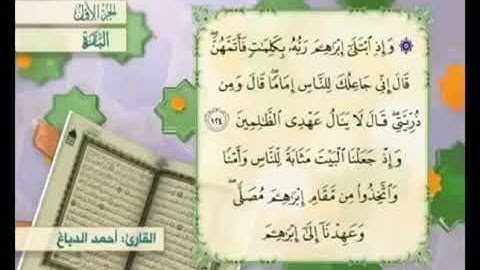 الجزء الأول
البقرة
۞ وَإِذِ ٱبْتَلَىٰٓ إِبْرَٰهِـۧمَ رَبُّهُۥ بِكَلِمَٰتٍ فَأَتَمَّهُنَّ ۖ
قَالَ إِنِّى جَاعِلُكَ لِلنَّاسِ إِمَامًا ۖ قَالَ وَمِن
ذُرِّيَّتِى ۖ قَالَ لَا يَنَالُ عَهْدِى ٱلظَّٰلِمِينَ ١٢٤
وَإِذْ جَعَلْنَا ٱلْبَيْتَ مَثَابَةً لِّلنَّاسِ وَأَمْنًا
وَٱتَّخِذُوا۟ مِن مَّقَامِ إِبْرَٰهِـۧمَ مُصَلًّى ۖ
وَعَهِدْنَآ إِلَىٰٓ إِبْرَٰهِـۧمَ
القارئ: أحمد الدباغ